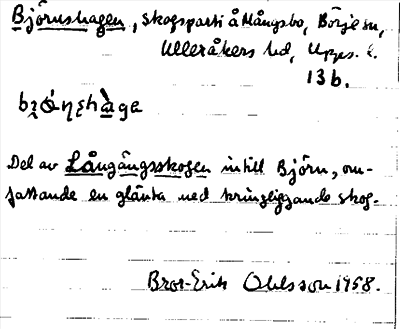 Björnshagen, skogsparti å Mångsbo, Börje sn,
Ulleråkers hd, Upps. l.
13 b.
Del av Långängsskogen intill Björn, om-
fattande en glänta med kringliggande skog.
Bror-Erik Ohlsson 1958.